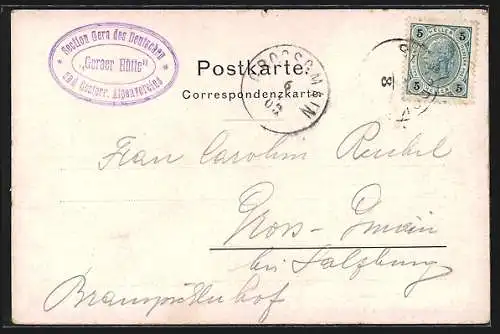 * Section Gera des Deutschen *
"Geraer Hütte"
und Oesterr. Alpenvereins
Postkarte.
Correspondenzkarte
GROSSGMAIN
6
03
5 5
5 5
8
Frau Carolin Reichel
Gross-Gmain
bei Salzburg